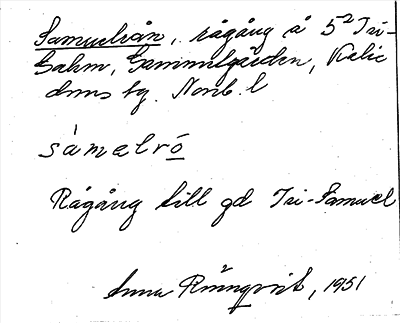 Samuelsrån, rågång å 5² Tri-
Sahm, Gammelgården, Kalix
dms tg. Norrb. l
sámelró
Rågång till gd Tri-Samuel
Anna Rönnqvist, 1951